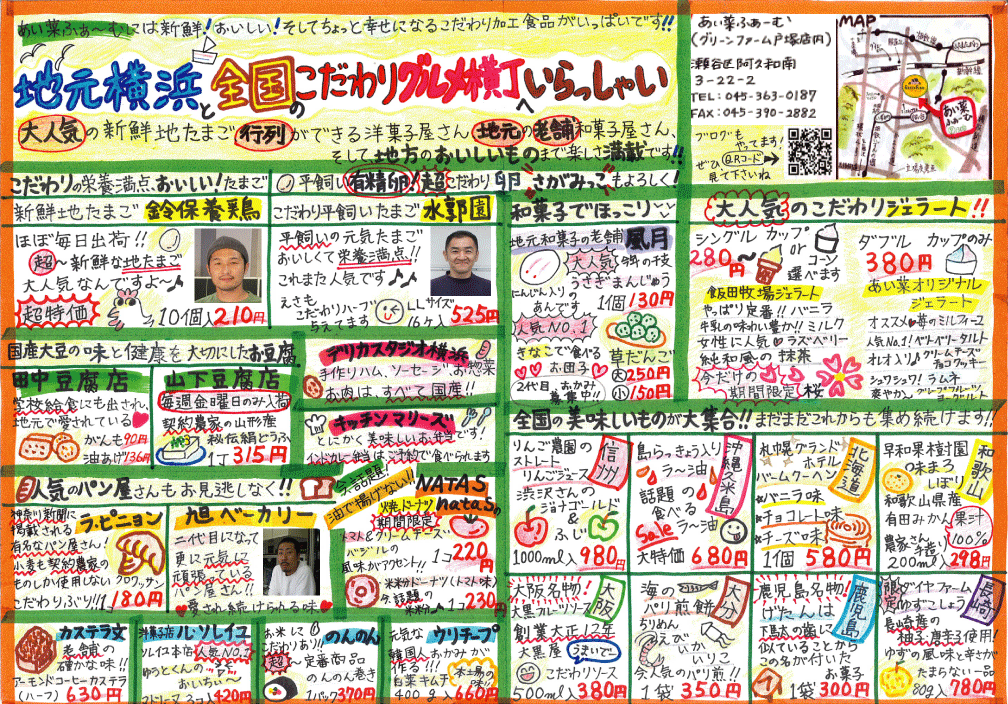 あい菜ふぁ～むには新鮮!おいしい!そしてちょっと幸せになるこだわり加工食品がいっぱいです!!
地元横浜と全国のこだわりグルメ横丁へいらっしゃい
大人気の新鮮地たまご 行列ができる洋菓子屋さん、地元の老舗和菓子屋さん、
そして地方のおいしいものまで楽しさ満載です!!
あい菜ふぁーむ
(グリーンファーム戸塚店内)
瀬谷区阿久和南
3-22-2
TEL:045-363-0187
FAX:045-390-2882
ブログも
やってます!
ぜひ
QRコード
見て下さいね
MAP
あい菜
ふぁーむ
こだわりの栄養満点、おいしい!たまご
平飼い有精卵!超こだわり卵 さがみっこもよろしく!
新鮮地たまご 鈴保養鶏
ほぼ毎日出荷!!
超～新鮮な地たまご
大人気なんですよ～♪
超特価
10個入210円
こだわり平飼いたまご 水郭園
平飼いの元気たまご
おいしくて栄養満点!!
これまた人気です♪♪
えさも
こだわりハーブ
与えてます
LLサイズ
16ヶ入
525円
和菓子でほっこり
地元和菓子の老舗 風月
大人気
うさぎまんじゅう
にんじん入りの
あんです
1個130円
人気NO.1
きなこで食べる
お団子
2代目、おかみ
募集中!!
草だんご
大250円
小150円
大人気のこだわりジェラート!!
シングル カップ
or
コーン
選べます
280円～
ダブル カップのみ
380円
飯田牧場ジェラート
やっぱり定番!!バニラ
牛乳の味わい豊か!!ミルク
女性に人気♥ラズベリー
純和風の抹茶
今だけの
期間限定 桜
あい菜オリジナル
ジェラート
オススメ♥苺のミルフィーユ
人気No.1!ベトベリータルト
オレオ入り♪クリームチーズ
チョコクッキー
シュワシュワ!ラムネ
爽やか、グレープフルーツ
ヨーグルト
国産大豆の味と健康を大切にしたお豆腐
田中豆腐店
学校給食にも出され、
地元で愛されている
がんも90円
油あげ136円
山下豆腐店
毎週金曜日のみ入荷
契約農家の山形産
秘伝絹どうふ
1丁315円
デリカスタジオ横浜
手作りハム、ソーセージ、お惣菜
お肉は、すべて国産!!
キッチン マリーズ
とにかく美味しいお弁当です!
インドカレー弁当は、ご予約で食べられます
人気のパン屋さんもお見逃しなく!!
神奈川新聞に
掲載される
有名なパン屋さん!
小麦も契約農家の
ものしか使用しない
こだわりぶり!!
ラ・ピニョン
クロワッサン
1コ180円
旭ベーカリー
二代目になって
更に元気に
頑張っている
パン屋さん!!
♥愛され続けられる味♥
今話題
油で揚げない!!
NATAS
natasの
焼ドーナツ
期間限定
トマト&クリームチーズ
バジルの
風味がアクセント!!
1コ220円
米粉ドーナツ(トマト味)
今話題の
米粉♪
1コ230円
カステラ文
老舗の
確かな味!!
アーモンドコーヒーカステラ
(ハーフ)630円
洋菓子店ル・ソレイユ
人気NO.1
ゆうとくんの
おいちぃ～
3コ入420円
お米に
こだわりあり!!
のんのん
超～定番商品
のんのん巻き
1パック370円
元気な
韓国人おかみが
作る!!!
ウリチープ
本場の味!!
白菜キムチ
400g入660円
全国の美味しいものが大集合!!まだまだこれからも集め続けます!!
りんご農園の
ストレート
りんごジュース
信州
渋沢さんの
ジョナゴールド
&
ふじ
1000ml入980円
島らっきょう入り
ラー油
沖縄久米島
話題の
食べる
ラー油
Sale
大特価680円
札幌グランド
ホテル
バームクーヘン
北海道
バニラ味
チョコレート味
チーズ味
1個580円
早和果樹園
味まろ
しぼり
和歌山
和歌山県産
有田みかん
果汁
100%
農家さん
手造り
200ml入298円
大阪名物!
大黒屋ソース
大阪
創業大正12年
大黒屋
うまいで
こだわりソース
500ml入380円
海の
パリパリ煎餅
大分
ちりめん
えび
いか
いりこ
今人気のパリ煎!!
1袋350円
鹿児島名物!
げたんは
鹿児島
下駄の歯に
似ていることから
この名が付いた
お菓子
1袋300円
ダイヤファーム
ゆずこしょう
限定
長崎
長崎産の
柚子、唐辛子使用!
ゆずの風味と辛さが
たまらない一品
80g入780円